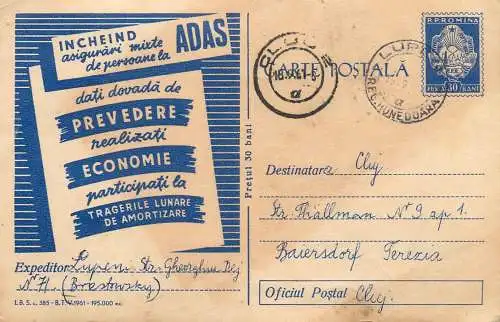 INCHEIND
asigurări mixte
de persoane la
ADAS
dați dovadă de
PREVEDERE
realizați
ECONOMIE
participați la
TRAGERILE LUNARE
DE AMORTIZARE
Expeditor: Lupeni Str. Gheorghiu Dej
N° 71. (Brestowsky)
I.B.S. c. 385 - B.T. V.1961 - 195.000 ex.
Prețul 30 bani
CARTE POSTALĂ
CLUJ
R.P.ROMINA
30 BANI
LUPENI
REG. HUNEDOARA
a
Destinatara Cluj
Str. Thällman N° 9 ap 1.
Baiersdorf Terezia
Oficiul Poștal Cluj.